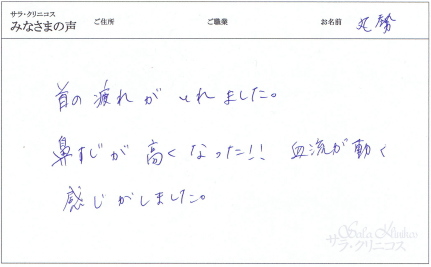 サラ・クリニコス
みなさまの声 ご住所 ご職業 お名前
首の疲れがとれました。
鼻すじが高くなった!! 血流が動く
感じがしました。
Sala Klinikos
サラ・クリニコス